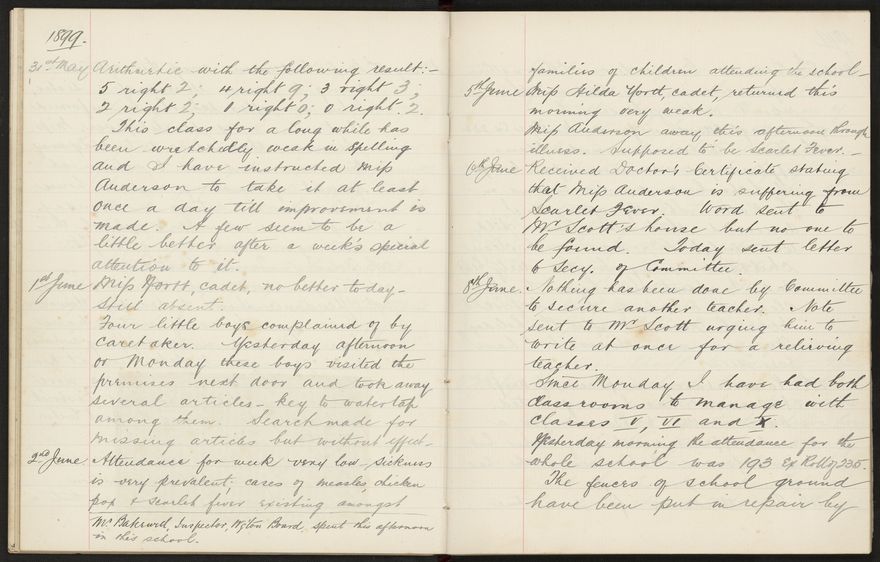 1899.
31st May Arithmetic with the following result:-
5 right 2; 4 right 9; 3 right 3;
2 right 2; 1 right 0; 0 right 2.
This class for a long while has
been wretchedly weak in spelling
and I have instructed Miss
Anderson to take it at least
once a day till improvement is
made. A few seem to be a
little better after a week's special
attention to it.
1st June Miss Yortt, cadet, no better today-
still absent.
Four little boys complained of by
caretaker. Yesterday afternoon
or Monday these boys visited the
premises next door and took away
several articles - key to water tap
among them. Search made for
missing articles but without effect-
2nd June Attendance for week very low - sickness
is very prevalent; cases of measles, chicken
pox & scarlet fever existing amongst
Mr. Bakewell, Inspector, Wgton Board, spent this afternoon
in this school.
families of children attending the school-
5th June Miss Hilda Yortt, cadet, returned this
morning very weak.
Miss Anderson away this afternoon through
illness. Supposed to be Scarlet Fever.-
6th June Received Doctor's Certificate stating
that Miss Anderson is suffering from
Scarlet Fever. Word sent to
Mr Scott's house but no one to
be found. Today sent letter
to Secy. of Committee.
8th June. Nothing has been done by Committee
to secure another teacher. Note
sent to Mr Scott urging him to
write at once for a relieving
teacher.
Since Monday I have had both
classrooms to manage with
classes V, VI and X.
Yesterday morning the attendance for the
whole school was 193 Ex Roll of 235.
The fences of school ground
have been put in repair by